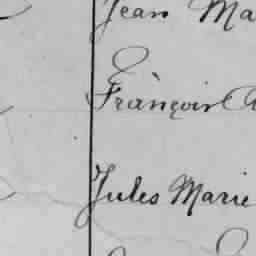 Jean Ma
François A
Jules Marie